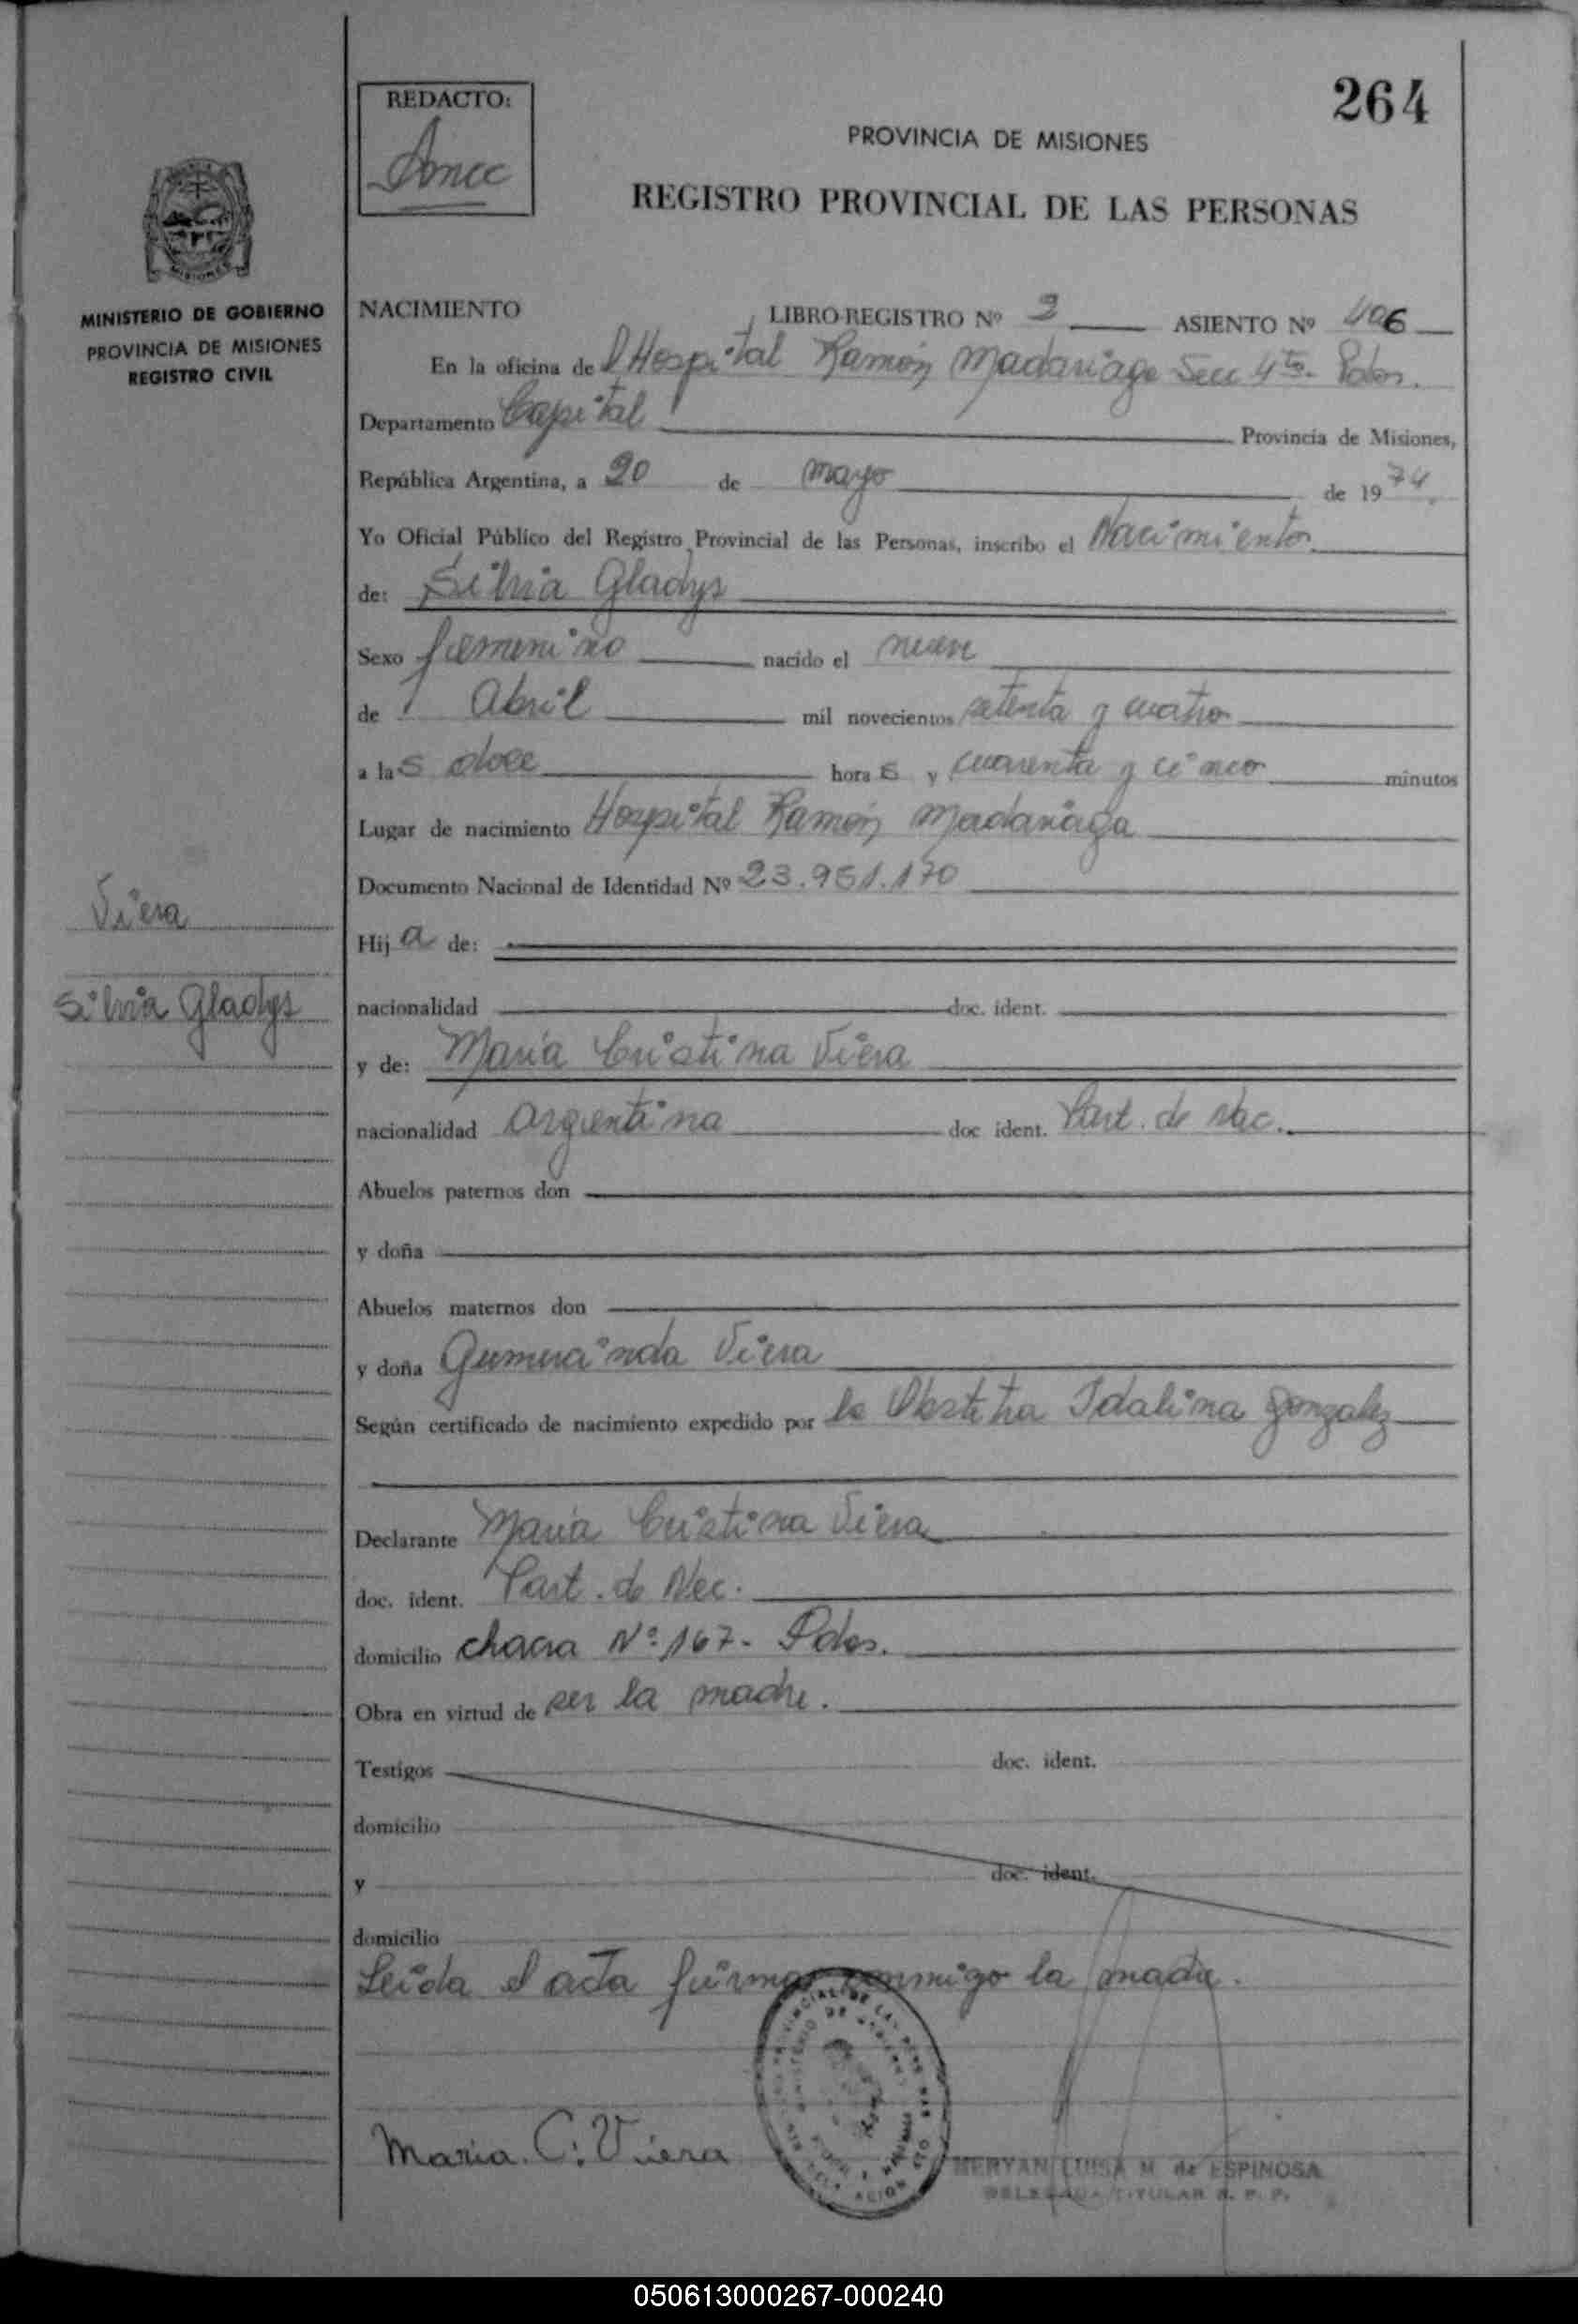 264
REDACTO:
PROVINCIA DE MISIONES
REGISTRO PROVINCIAL DE LAS PERSONAS
MISIONES
MINISTERIO DE GOBIERNO
PROVINCIA DE MISIONES
REGISTRO CIVIL
Viera
Silvia Gladys
NACIMIENTO LIBRO REGISTRO Nº 2 ASIENTO Nº 406
En la oficina de l Hospital Ramón Madariaga Secc 4ta. Pdas.
Departamento Capital Provincia de Misiones,
República Argentina, a 20 de mayo de 1974.
Yo Oficial Público del Registro Provincial de las Personas, inscribo el Nacimiento
de: Silvia Gladys
Sexo femenino nacido el nueve
de Abril mil novecientos setenta y cuatro
a las doce horas y cuarenta y cinco minutos
Lugar de nacimiento Hospital Ramón Madariaga
Documento Nacional de Identidad Nº 23.951.170
Hija de:
nacionalidad doc. ident.
y de: María Cristina Viera
nacionalidad Argentina doc ident. Part. de Nac.
Abuelos paternos don
y doña
Abuelos maternos don
y doña Gumercinda Viera
Según certificado de nacimiento expedido por la Obstetra Idalina Gonzalez
Declarante María Cristina Viera
doc. ident. Part. de Nac.
domicilio chacra Nº 167. Pdas.
Obra en virtud de ser la madre.
Testigos doc. ident.
domicilio
y doc. ident.
domicilio
Leída el acta firma conmigo la madre.
Maria. C. Viera
MERYAN LUISA M. de ESPINOSA
DELEGADA TITULAR R. P. P.
050613000267-000240